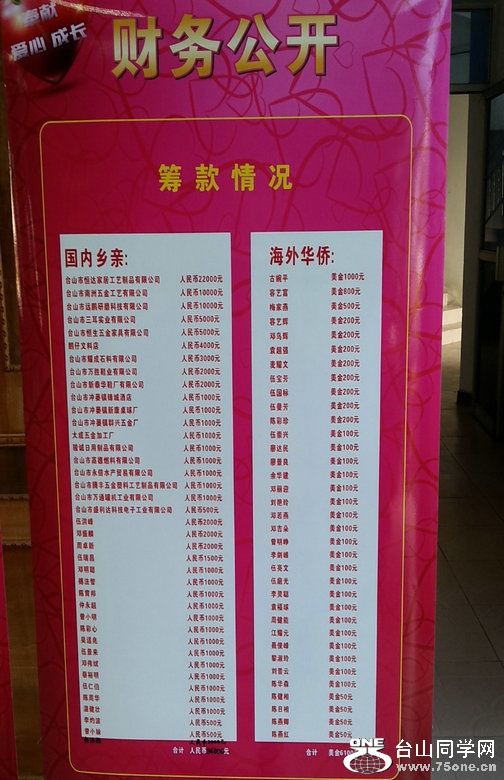 奉献
爱心 成长
财务公开
筹款情况
国内乡亲:
台山市恒达家居工艺制品有限公司 人民币22000元
台山市南洲五金工艺有限公司 人民币10000元
台山市远鹏研磨科技有限公司 人民币10000元
台山市三耳实业有限公司 人民币5000元
台山市恒生五金家具有限公司 人民币5000元
鹏仔文料店 人民币4000元
台山市耀成石料有限公司 人民币3000元
台山市万胜鞋业有限公司 人民币2000元
台山市新泰华鞋厂有限公司 人民币2000元
台山市冲蒌镇锦城酒店 人民币1000元
台山市冲蒌镇新康桌球厂 人民币1000元
台山市冲蒌镇群兴五金厂 人民币1000元
大成五金加工厂 人民币1000元
骏诚日用制品有限公司 人民币1000元
台山市高德燃料有限公司 人民币1000元
台山市永信水产贸易有限公司 人民币1000元
台山市腾丰五金塑料工艺制品有限公司 人民币1000元
台山市万通罐机工业有限公司 人民币1000元
台山市盛利达科技电子工业有限公司 人民币500元
伍洪峰 人民币2000元
邓振麟 人民币2000元
周卓新 人民币2000元
伍瑞昌 人民币1500元
邓明聪 人民币1000元
傅法智 人民币1000元
陈育邦 人民币1000元
仲永超 人民币1000元
曾小明 人民币1000元
陈彩心 人民币1000元
吴道兆 人民币1000元
伍景来 人民币1000元
邓伟斌 人民币1000元
蔡裕明 人民币1000元
伍仁伯 人民币1000元
陈周华 人民币1000元
温健壮 人民币1000元
李灼波 人民币500元
曾小咏 人民币500元
合计 人民币 元
海外华侨:
古婉平 美金1000元
容艺富 美金800元
梅家燕 美金500元
容艺辉 美金200元
邓鸟辉 美金200元
袁超强 美金200元
麦耀文 美金200元
伍宝芳 美金200元
伍国标 美金200元
伍曼芳 美金200元
陈彩珍 美金200元
伍崇兴 美金100元
蔡达民 美金100元
蔡曼良 美金100元
余华建 美金100元
邓丽迎 美金100元
刘艳玲 美金100元
邓若燕 美金100元
邓杏朵 美金100元
曾明峥 美金100元
李剑雄 美金100元
伍亮文 美金100元
伍庭光 美金100元
李灵聪 美金100元
袁福球 美金100元
周健能 美金100元
江耀元 美金100元
聂俊峰 美金100元
黎淑玲 美金100元
刘晋云 美金100元
陈华森 美金100元
陈健相 美金50元
陈日相 美金50元
陈燕卿 美金50元
陈燕红 美金50元
合计 美金
ONE 台山同学网
www.75one.cn